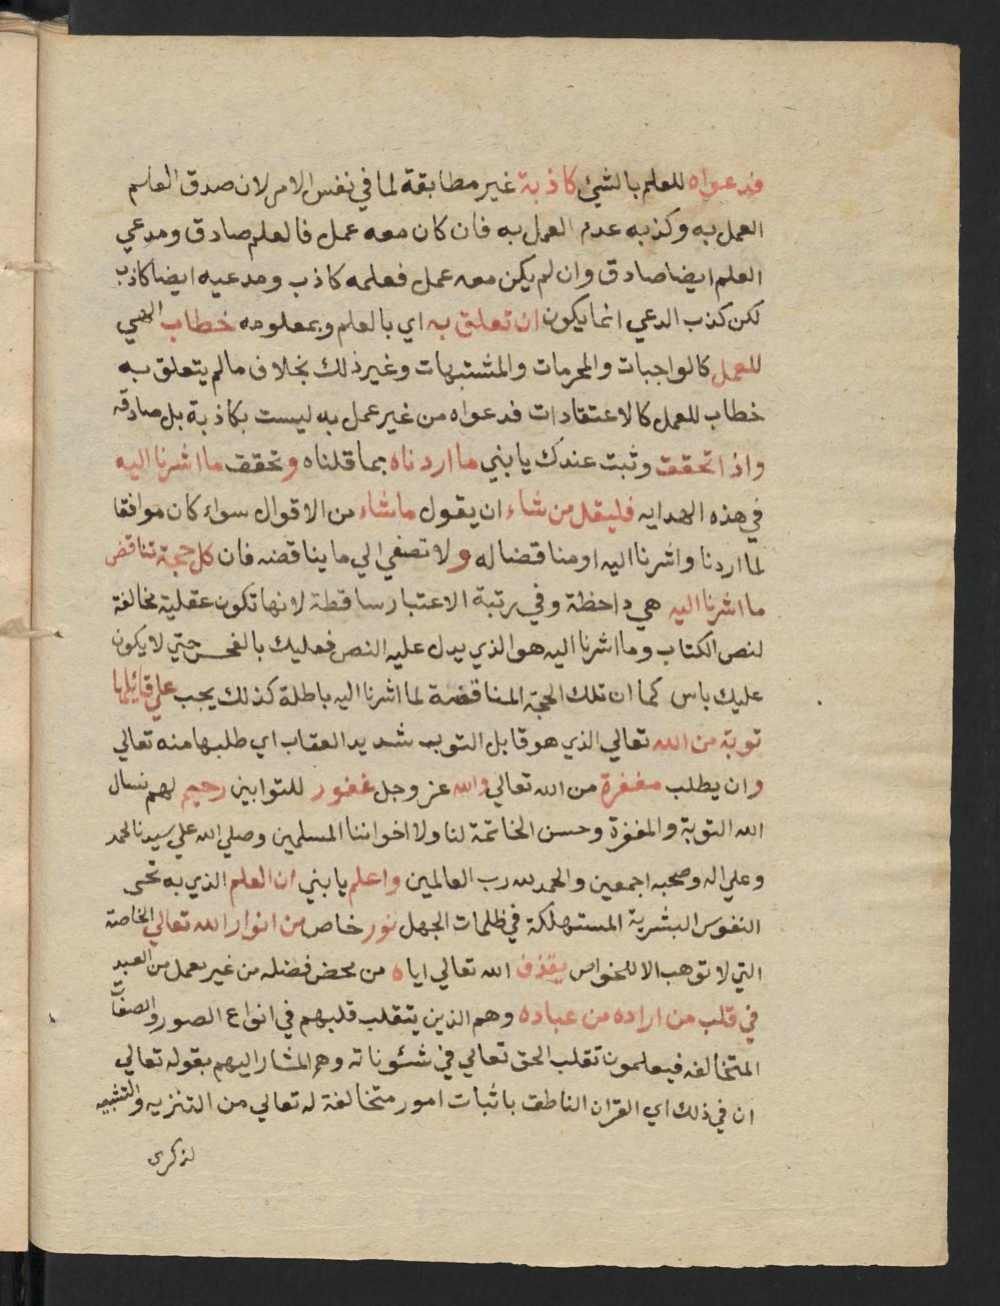 فدعواه للعلم بالشئ كاذبة غير مطابقة لما في نفس الامر لان صدق العلم
العمل به وكذبه عدم العمل به فان كان معه عمل فالعلم صادق ومدعي
العلم ايضا صادق وان لم يكن معه عمل فعلمه كاذب ومدعيه ايضا كاذب
لكن كذب الدعي انما يكون ان تعلق به اي بالعلم وبمعلومه خطاب الهي
للعمل كالواجبات والمحرمات والمشتبهات وغير ذلك بخلاف مالم يتعلق به
خطاب للعمل كالاعتقادات فدعواه من غير عمل به ليست بكاذبة بل صادقه
واذا تحقق وثبت عندك يا بني ما اردناه بما قلناه وتحقق ما اشرنا اليه
في هذه الهدايه فليقل من شاء ان يقول ما شاء من الاقوال سواء كان موافقا
لما اردنا واشرنا اليه او مناقضا له ولا تصغي الي ما يناقضه فان كل حجة تناقض
ما اشرنا اليه هي داحظة وفي رتبة الاعتبار ساقطة لانها تكون عقلية مخالفة
لنص الكتاب وما اشرنا اليه هو الذي يدل عليه النص فعليك بالفحص حتي لا يكون
عليك باس كما ان تلك الحجة المناقضة لما اشرنا اليه باطلة كذلك يجب علي قائلها
توبة من الله تعالي الذي هو قابل التوب شديد العقاب اي طلبها منه تعالي
وان يطلب مغفرة من الله تعالي والله عز وجل غفور للتوابين رحيم لهم نسال
الله التوبة والمغفرة وحسن الخاتمة لنا ولاخواننا المسلمين وصلي الله علي سيدنا محمد
وعلي اله وصحبه اجمعين والحمد لله رب العالمين واعلم يا بني ان العلم الذي به تحي
النفوس البشرية المستهلكة في ظلمات الجهل نور خاص من انوار الله تعالي الخاصة
التي لا توهب الا للخواص يقذف الله تعالي اياه من محض فضله من غير تعمل من العبد
في قلب من اراده من عباده وهم الذين يتقلب قلبهم في انواع الصور والصفات
المتخالفه فيعلمون تقلب الحق تعالي في شئوناته وهم المشار اليهم بقوله تعالي
ان في ذلك اي القران الناطق باثبات امور متخالفة له تعالي من التنزيه والتشبيه
لذكري